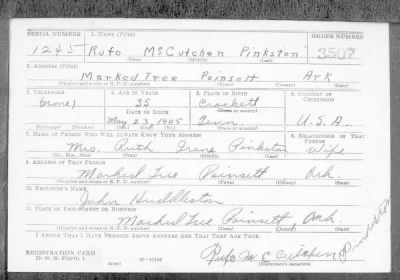 SERIAL NUMBER 1. NAME (Print) ORDER NUMBER
1245 Rufo McCutchen Pinkston 3507
(First) (Middle) (Last)
2. ADDRESS (Print)
Marked Tree Poinsett Ark
(Number and street or R. F. D. number) (Town) (County) (State)
3. TELEPHONE 4. AGE IN YEARS 5. PLACE OF BIRTH 6. COUNTRY OF CITIZENSHIP
(none) 35 Crockett
DATE OF BIRTH (Town or county)
May 23, 1905 Tenn. U.S.A.
(Exchange) (Number) (Mo.) (Day) (Yr.) (State or country)
7. NAME OF PERSON WHO WILL ALWAYS KNOW YOUR ADDRESS 8. RELATIONSHIP OF THAT PERSON
Mrs. Ruth Irene Pinkston wife
(Mr., Mrs., Miss) (First) (Middle) (Last)
9. ADDRESS OF THAT PERSON
Marked Tree Poinsett Ark.
(Number and street or R. F. D. number) (Town) (County) (State)
10. EMPLOYER'S NAME
John Huddleston
11. PLACE OF EMPLOYMENT OR BUSINESS
Marked Tree Poinsett Ark.
(Number and street or R. F. D. number) (Town) (County) (State)
I AFFIRM THAT I HAVE VERIFIED ABOVE ANSWERS AND THAT THEY ARE TRUE.
REGISTRATION CARD Rufo McCutchen Pinkston
D. S. S. FORM 1 (over) (Registrant's signature)